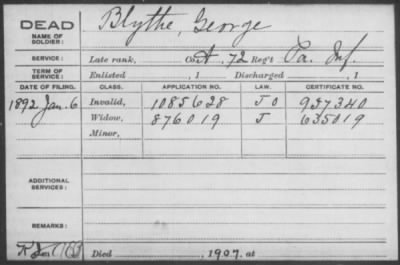 DEAD
NAME OF SOLDIER: Blythe, George
SERVICE: Late rank, Co. A, 72 Reg't Pa. Inf.
TERM OF SERVICE: Enlisted , 1 Discharged , 1
DATE OF FILING. CLASS. APPLICATION NO. LAW. CERTIFICATE NO.
1892 Jan. 6 Invalid, 1085628 J O 937340
Widow, 876019 J 635019
Minor,
ADDITIONAL SERVICES:
REMARKS:
Died , 1907, at